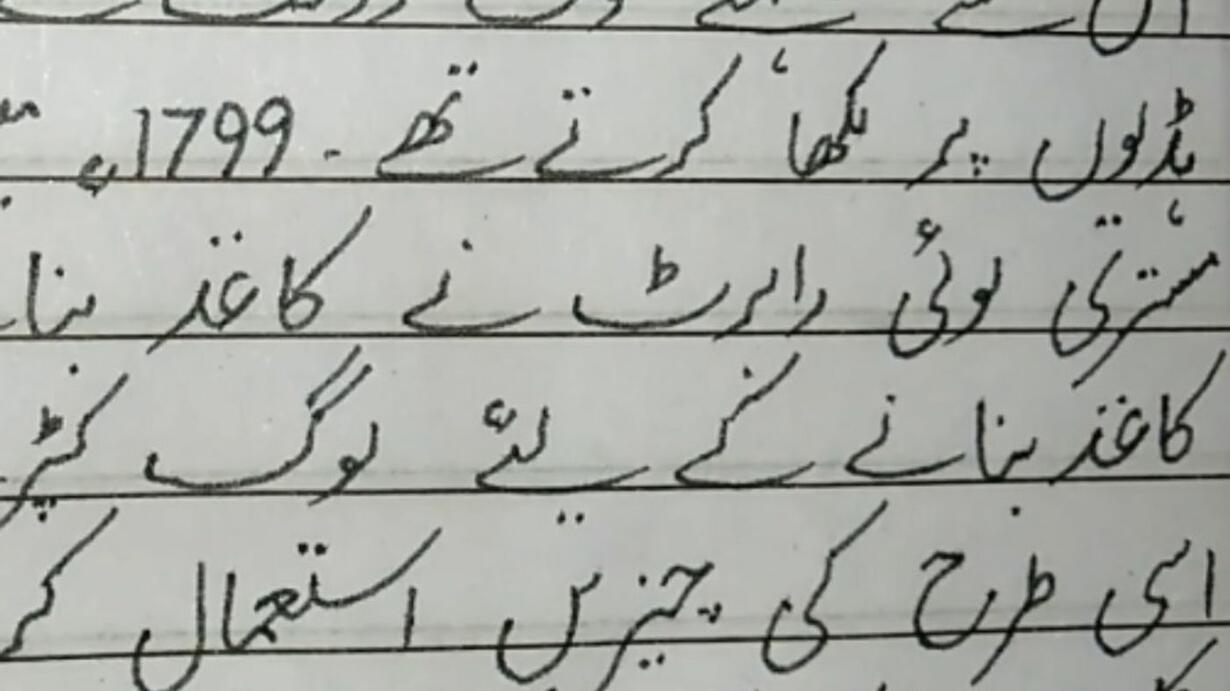 ہڈیوں پر لکھا کرتے تھے ۔ 1799ء
مستری لوئی رابرٹ نے کاغذ بنا
کاغذ بنانے کے لئے لوگ کپڑ
اسی طرح کی چیزیں استعمال کر